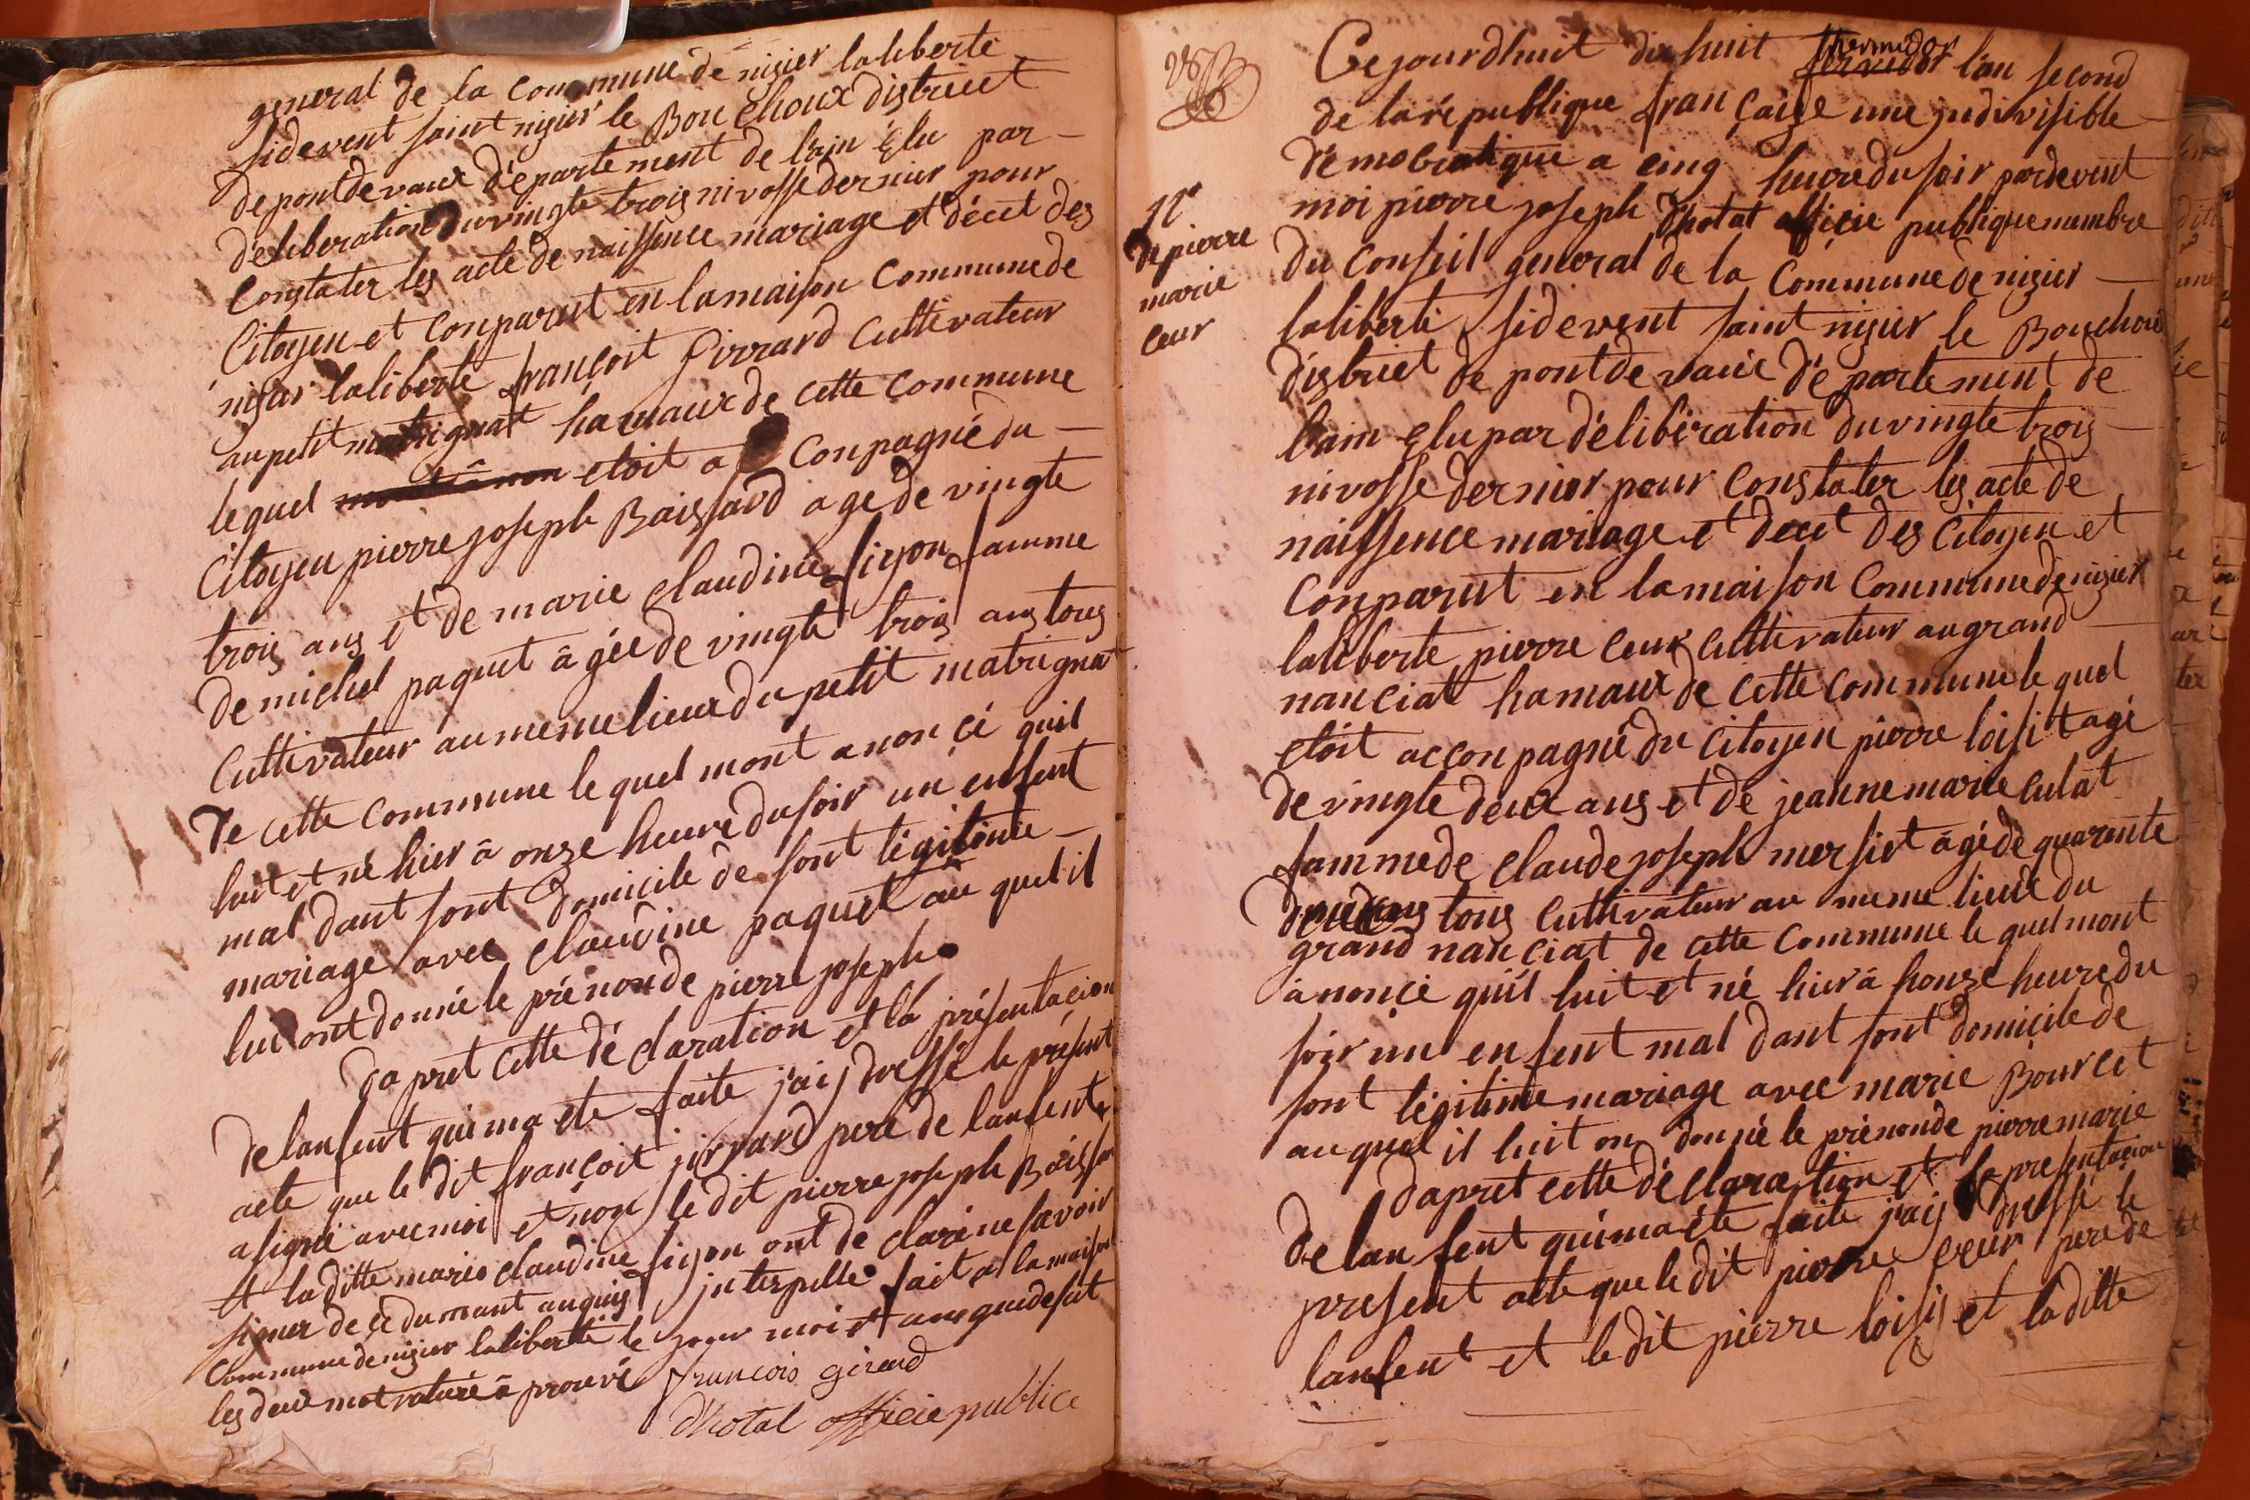 general de la commune de nizier laliberte
sidevent saint nizier le Bouchoux district
de pontdevaux département de lain Elu par
déliberation du vingte trois nivosse dernier pour
constater les acte de naissence mariage et décet des
Citoyen et conparut en la maison commune de
nizier laliberté françoit Girrard cultivateur
au petit matrignat hamaux de cette commune
lequel etoit a conpagné du
Citoyen pierre joseph Baissard age de vingte
trois ans et de marie claudine fizon famme
de michel paquet âgée de vingte trois ans tous
cultivateur au meme lieux du petit matrignat
de cette commune le quel mont anoncé quil
luit et né hier â onze heure du soir un enfent
mal dant sont domicile de sont légitime
mariage avec claudine paquet au quel il
lui ont donnée le prénon de pierre joseph
dapret cette déclaration et la présentacion
de lanfent qui ma ete faite jaij dressé le présent
acte que le dit françoit jirrard pere de lanfent
a signé avec moi et non le dit pierre joseph Baissar
et la ditte marie claudine fizon ont declaré ne savoir
signer de ce dumant anquis interpellé fait a la maison
commune de nizier laliberté le jour moi et ans que desut
les deux mot raturé â prouvé francois girard
dhotal officie publice
28
Cejourdhuit dix huit thermidor
fervidor lan second
de la république françaize une jndivisible
démocratique a cinq heure du soir pardevent
moi pierre joseph Dhotat officie publique menbre
du conseil general de la commune de nizier
laliberté sidevent saint nizier le Bouchou
district de pontdevaux département de
lain Elu par délibération du vingte trois
nivosse dernier pour constater les acte de
naissence mariage et decet des Citoyen et
conparut en la maison commune de nizier
laliberte pierre ceur cultivateur au grand
nanciat hamaux de cette commune le quel
etoit acconpagné du citoyen pierre loisit agé
de vingte deux ans et de jeanne marie culat
famme de claude joseph mersiet âgé de quarente
deux ans tous cultivateur au meme lieux du
grand nanciat de cette commune le quel mont
anoncé quil luit et né hier â honze heure du
soir un enfent mal dant sont domicile de
sont légitime mariage avec marie Bourcet
au quel il luit on donnée le prénon de pierre marie
dapret cette déclaration et la presentacion
de lanfent qui ma éte faite jaij dressé le
present acte que le dit pierre ceur pere de
lanfent et le dit pierre loisij et la ditte
de pierre
marie
ceur